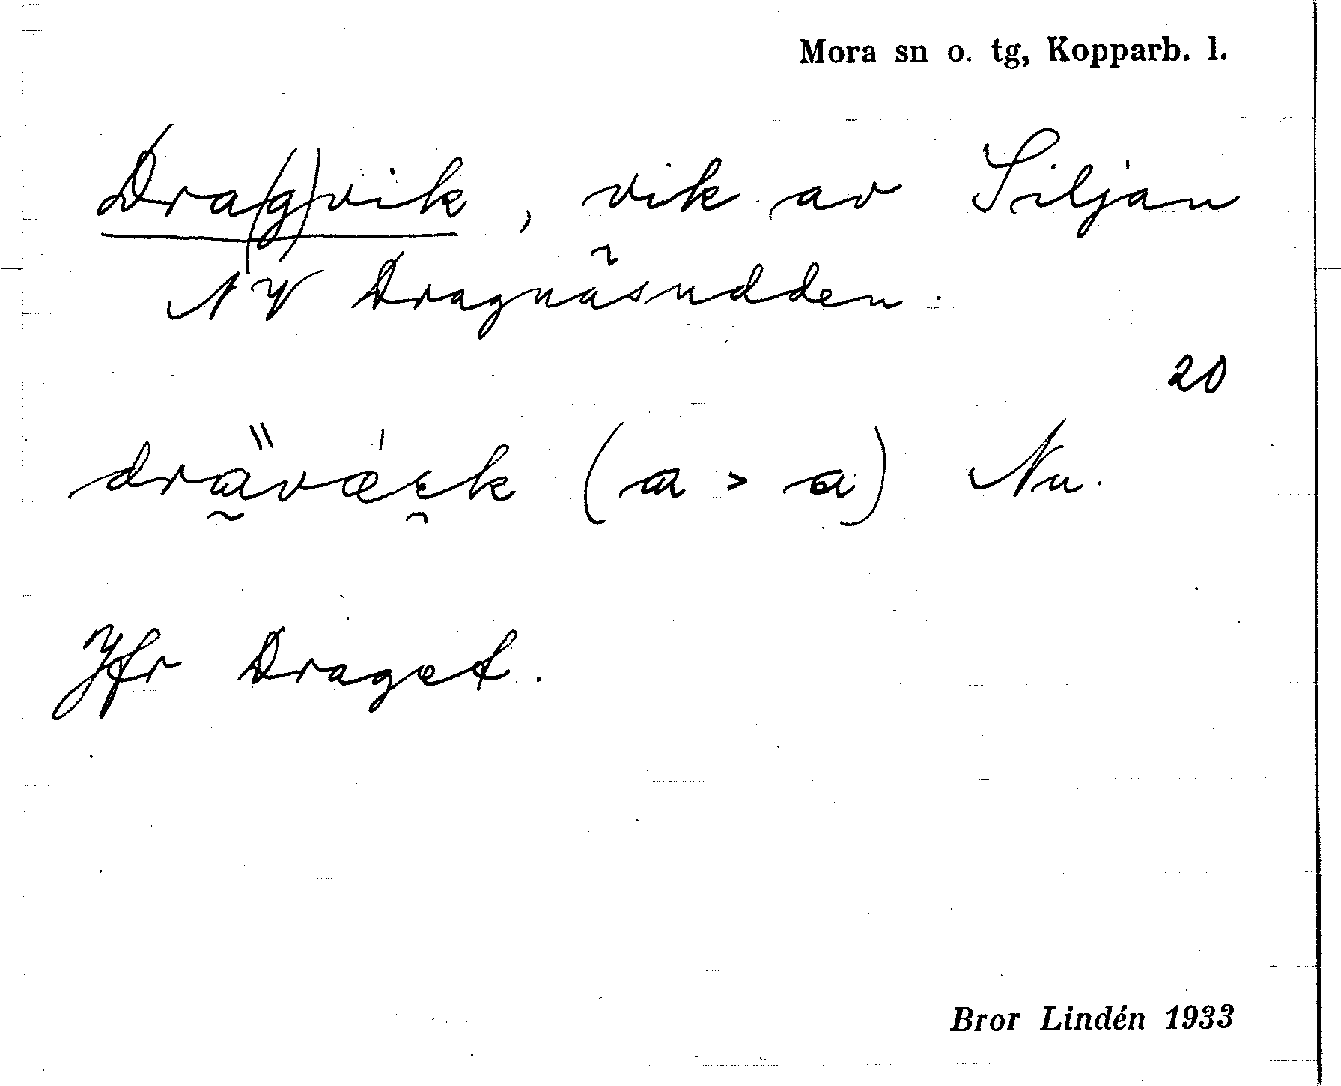 Mora sn o. tg, Kopparb. l.
Dra(g)vik, vik av Siljan
NV Dragnäsudden.
20
(a > a) Nu.
Jfr Draget.
Bror Lindén 1933